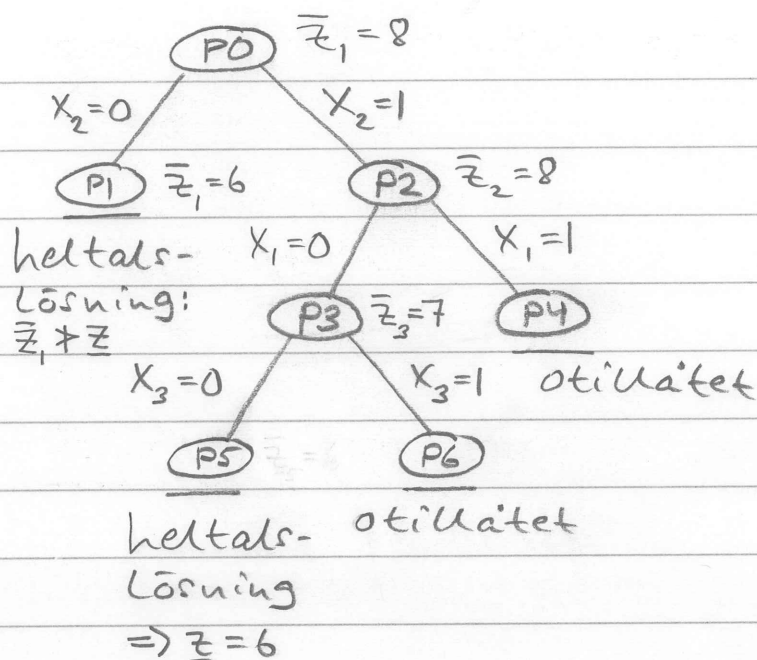 P0 z̄₁=8
x₂=0 x₂=1
P1 z̄₁=6 P2 z̄₂=8
heltals-
lösning:
z̄₁ ≯ z̲
x₁=0 x₁=1
P3 z̄₃=7 P4
otillåtet
x₃=0 x₃=1
P5 P6
heltals-
lösning
=> z̲ = 6
otillåtet